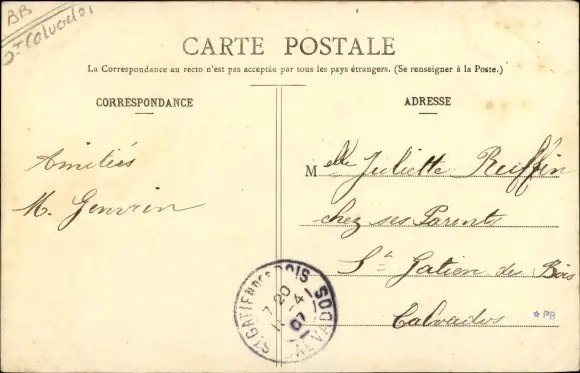 BB
Dt Calvados
CARTE POSTALE
La Correspondance au recto n'est pas acceptée par tous les pays étrangers. (Se renseigner à la Poste.)
CORRESPONDANCE
ADRESSE
Amitiés
M. Genvrin
Melle Juliette Ruffin
chez ses Parents
St Gatien des Bois
Calvados
ST GATIEN DES BOIS
7 20
-4
07
CALVADOS
*PB